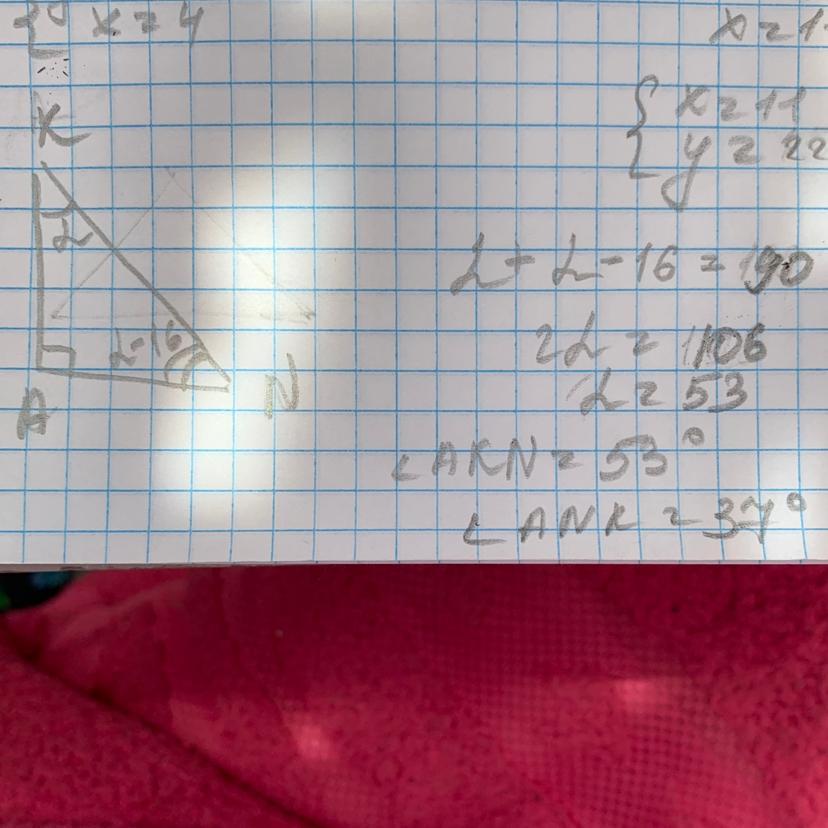 { x = 4
x = 1
{ x = 11
y = 22
K
α
α - 16
A
N
α + α - 16 = 90
2α = 106
α = 53
∠AKN = 53°
∠ANK = 37°